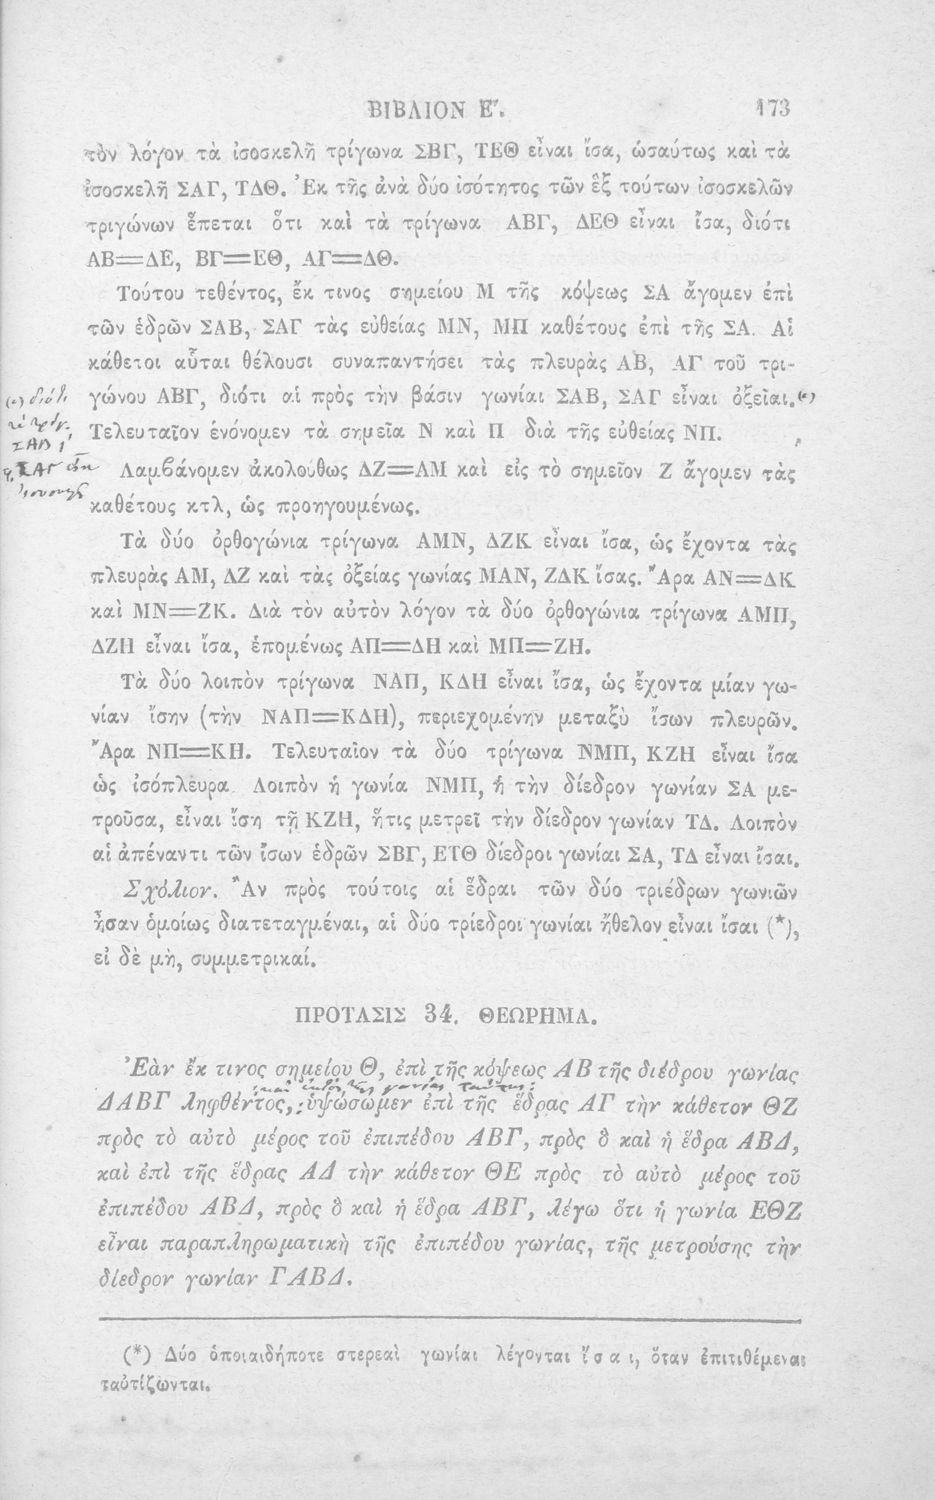 ΒΙΒΛΙΟΝ Ε΄. 173
τὸν λόγον τὰ ἰσοσκελῆ τρίγωνα ΣΒΓ, ΤΕΘ εἶναι ἴσα, ὡσαύτως καὶ τὰ
ἰσοσκελῆ ΣΑΓ, ΤΔΘ. Ἐκ τῆς ἀνὰ δύο ἰσότητος τῶν ἓξ τούτων ἰσοσκελῶν
τριγώνων ἕπεται ὅτι καὶ τὰ τρίγωνα ΑΒΓ, ΔΕΘ εἶναι ἴσα, διότι
ΑΒ=ΔΕ, ΒΓ=ΕΘ, ΑΓ=ΔΘ.
Τούτου τεθέντος, ἔκ τινος σημείου Μ τῆς κόψεως ΣΑ ἄγομεν ἐπὶ
τῶν ἑδρῶν ΣΑΒ, ΣΑΓ τὰς εὐθείας ΜΝ, ΜΠ καθέτους ἐπὶ τῆς ΣΑ. Αἱ
κάθετοι αὗται θέλουσι συναπαντήσει τὰς πλευρὰς ΑΒ, ΑΓ τοῦ τρι-
γώνου ΑΒΓ, διότι αἱ πρὸς τὴν βάσιν γωνίαι ΣΑΒ, ΣΑΓ εἶναι ὀξεῖαι.
Τελευταῖον ἑνόνομεν τὰ σημεῖα Ν καὶ Π διὰ τῆς εὐθείας ΝΠ.
Λαμβάνομεν ἀκολούθως ΔΖ=ΑΜ καὶ εἰς τὸ σημεῖον Ζ ἄγομεν τὰς
καθέτους κτλ, ὡς προηγουμένως.
Τὰ δύο ὀρθογώνια τρίγωνα ΑΜΝ, ΔΖΚ εἶναι ἴσα, ὡς ἔχοντα τὰς
πλευρὰς ΑΜ, ΔΖ καὶ τὰς ὀξείας γωνίας ΜΑΝ, ΖΔΚ ἴσας. Ἄρα ΑΝ=ΔΚ
καὶ ΜΝ=ΖΚ. Διὰ τὸν αὐτὸν λόγον τὰ δύο ὀρθογώνια τρίγωνα ΑΜΠ,
ΔΖΗ εἶναι ἴσα, ἑπομένως ΑΠ=ΔΗ καὶ ΜΠ=ΖΗ.
Τὰ δύο λοιπὸν τρίγωνα ΝΑΠ, ΚΔΗ εἶναι ἴσα, ὡς ἔχοντα μίαν γω-
νίαν ἴσην (τὴν ΝΑΠ=ΚΔΗ), περιεχομένην μεταξὺ ἴσων πλευρῶν.
Ἄρα ΝΠ=ΚΗ. Τελευταῖον τὰ δύο τρίγωνα ΝΜΠ, ΚΖΗ εἶναι ἴσα
ὡς ἰσόπλευρα. Λοιπὸν ἡ γωνία ΝΜΠ, ἡ τὴν δίεδρον γωνίαν ΣΑ με-
τροῦσα, εἶναι ἴση τῇ ΚΖΗ, ἥτις μετρεῖ τὴν δίεδρον γωνίαν ΤΔ. Λοιπὸν
αἱ ἀπέναντι τῶν ἴσων ἑδρῶν ΣΒΓ, ΕΤΘ δίεδροι γωνίαι ΣΑ, ΤΔ εἶναι ἴσαι.
Σχόλιον. Ἂν πρὸς τούτοις αἱ ἕδραι τῶν δύο τριέδρων γωνιῶν
ἦσαν ὁμοίως διατεταγμέναι, αἱ δύο τρίεδροι γωνίαι ἤθελον εἶναι ἴσαι (*),
εἰ δὲ μὴ, συμμετρικαί.
ΠΡΟΤΑΣΙΣ 34. ΘΕΩΡΗΜΑ.
Ἐὰν ἔκ τινος σημείου Θ, ἐπὶ τῆς κόψεως ΑΒ τῆς διέδρου γωνίας
καὶ ἐντὸς τῆς γωνίας ταύτης
ΔΑΒΓ ληφθέντος, ὑψώσωμεν ἐπὶ τῆς ἕδρας ΑΓ τὴν κάθετον ΘΖ
πρὸς τὸ αὐτὸ μέρος τοῦ ἐπιπέδου ΑΒΓ, πρὸς ὃ καὶ ἡ ἕδρα ΑΒΔ,
καὶ ἐπὶ τῆς ἕδρας ΑΔ τὴν κάθετον ΘΕ πρὸς τὸ αὐτὸ μέρος τοῦ
ἐπιπέδου ΑΒΔ, πρὸς ὃ καὶ ἡ ἕδρα ΑΒΓ, λέγω ὅτι ἡ γωνία ΕΘΖ
εἶναι παραπληρωματικὴ τῆς ἐπιπέδου γωνίας, τῆς μετρούσης τὴν
δίεδρον γωνίαν ΓΑΒΔ.
(*) Δύο ὁποιαιδήποτε στερεαὶ γωνίαι λέγονται ἴσαι, ὅταν ἐπιτιθέμεναι
ταὐτίζωνται.